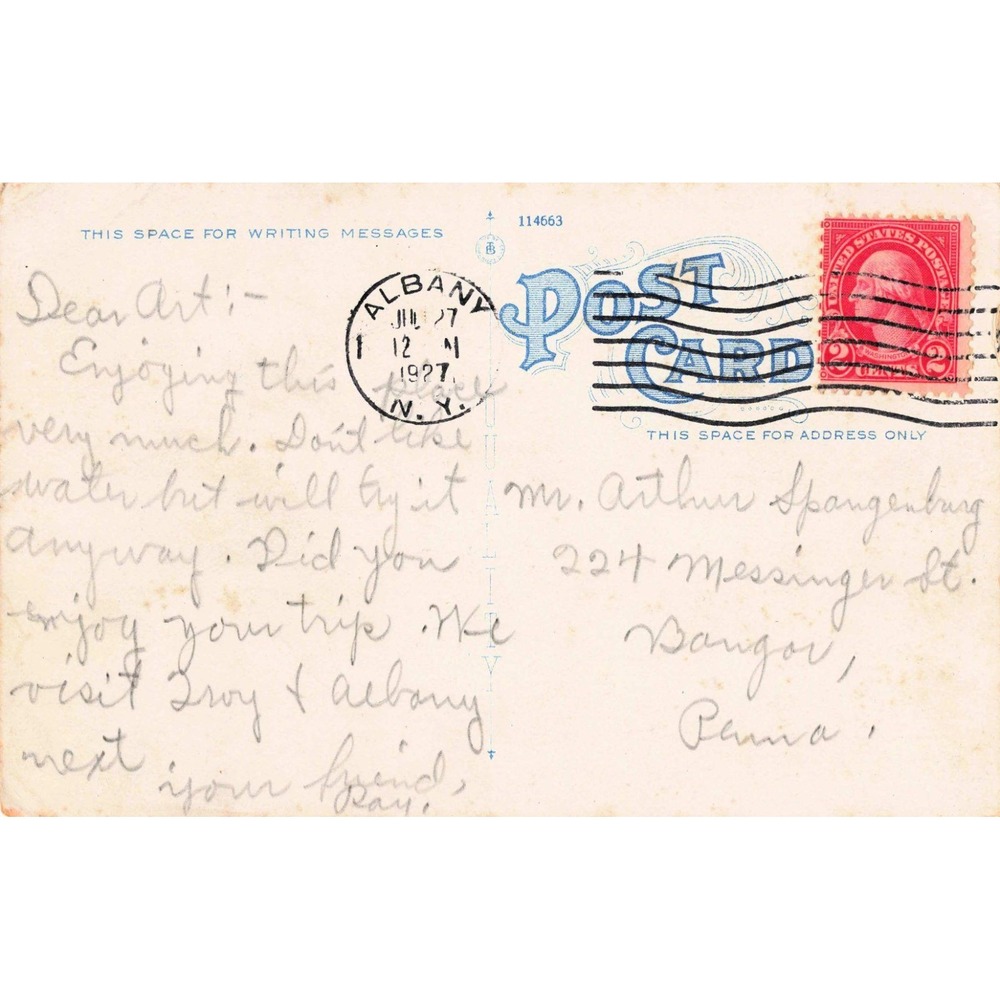 THIS SPACE FOR WRITING MESSAGES
Dear Art:-
Enjoying this place
very much. Don't like
water but will try it
anyway. Did you
enjoy your trip. We
visit Troy & Albany
next
your friend,
Ray.
114663
POST
CARD
ALBANY
JUL 27
12 M
1927
N. Y.
1
UNITED STATES POSTAGE
WASHINGTON
2 CENTS 2
THIS SPACE FOR ADDRESS ONLY
Mr. Arthur Spangenburg
224 Messinger St.
Bangor,
Penna.
QUALITY